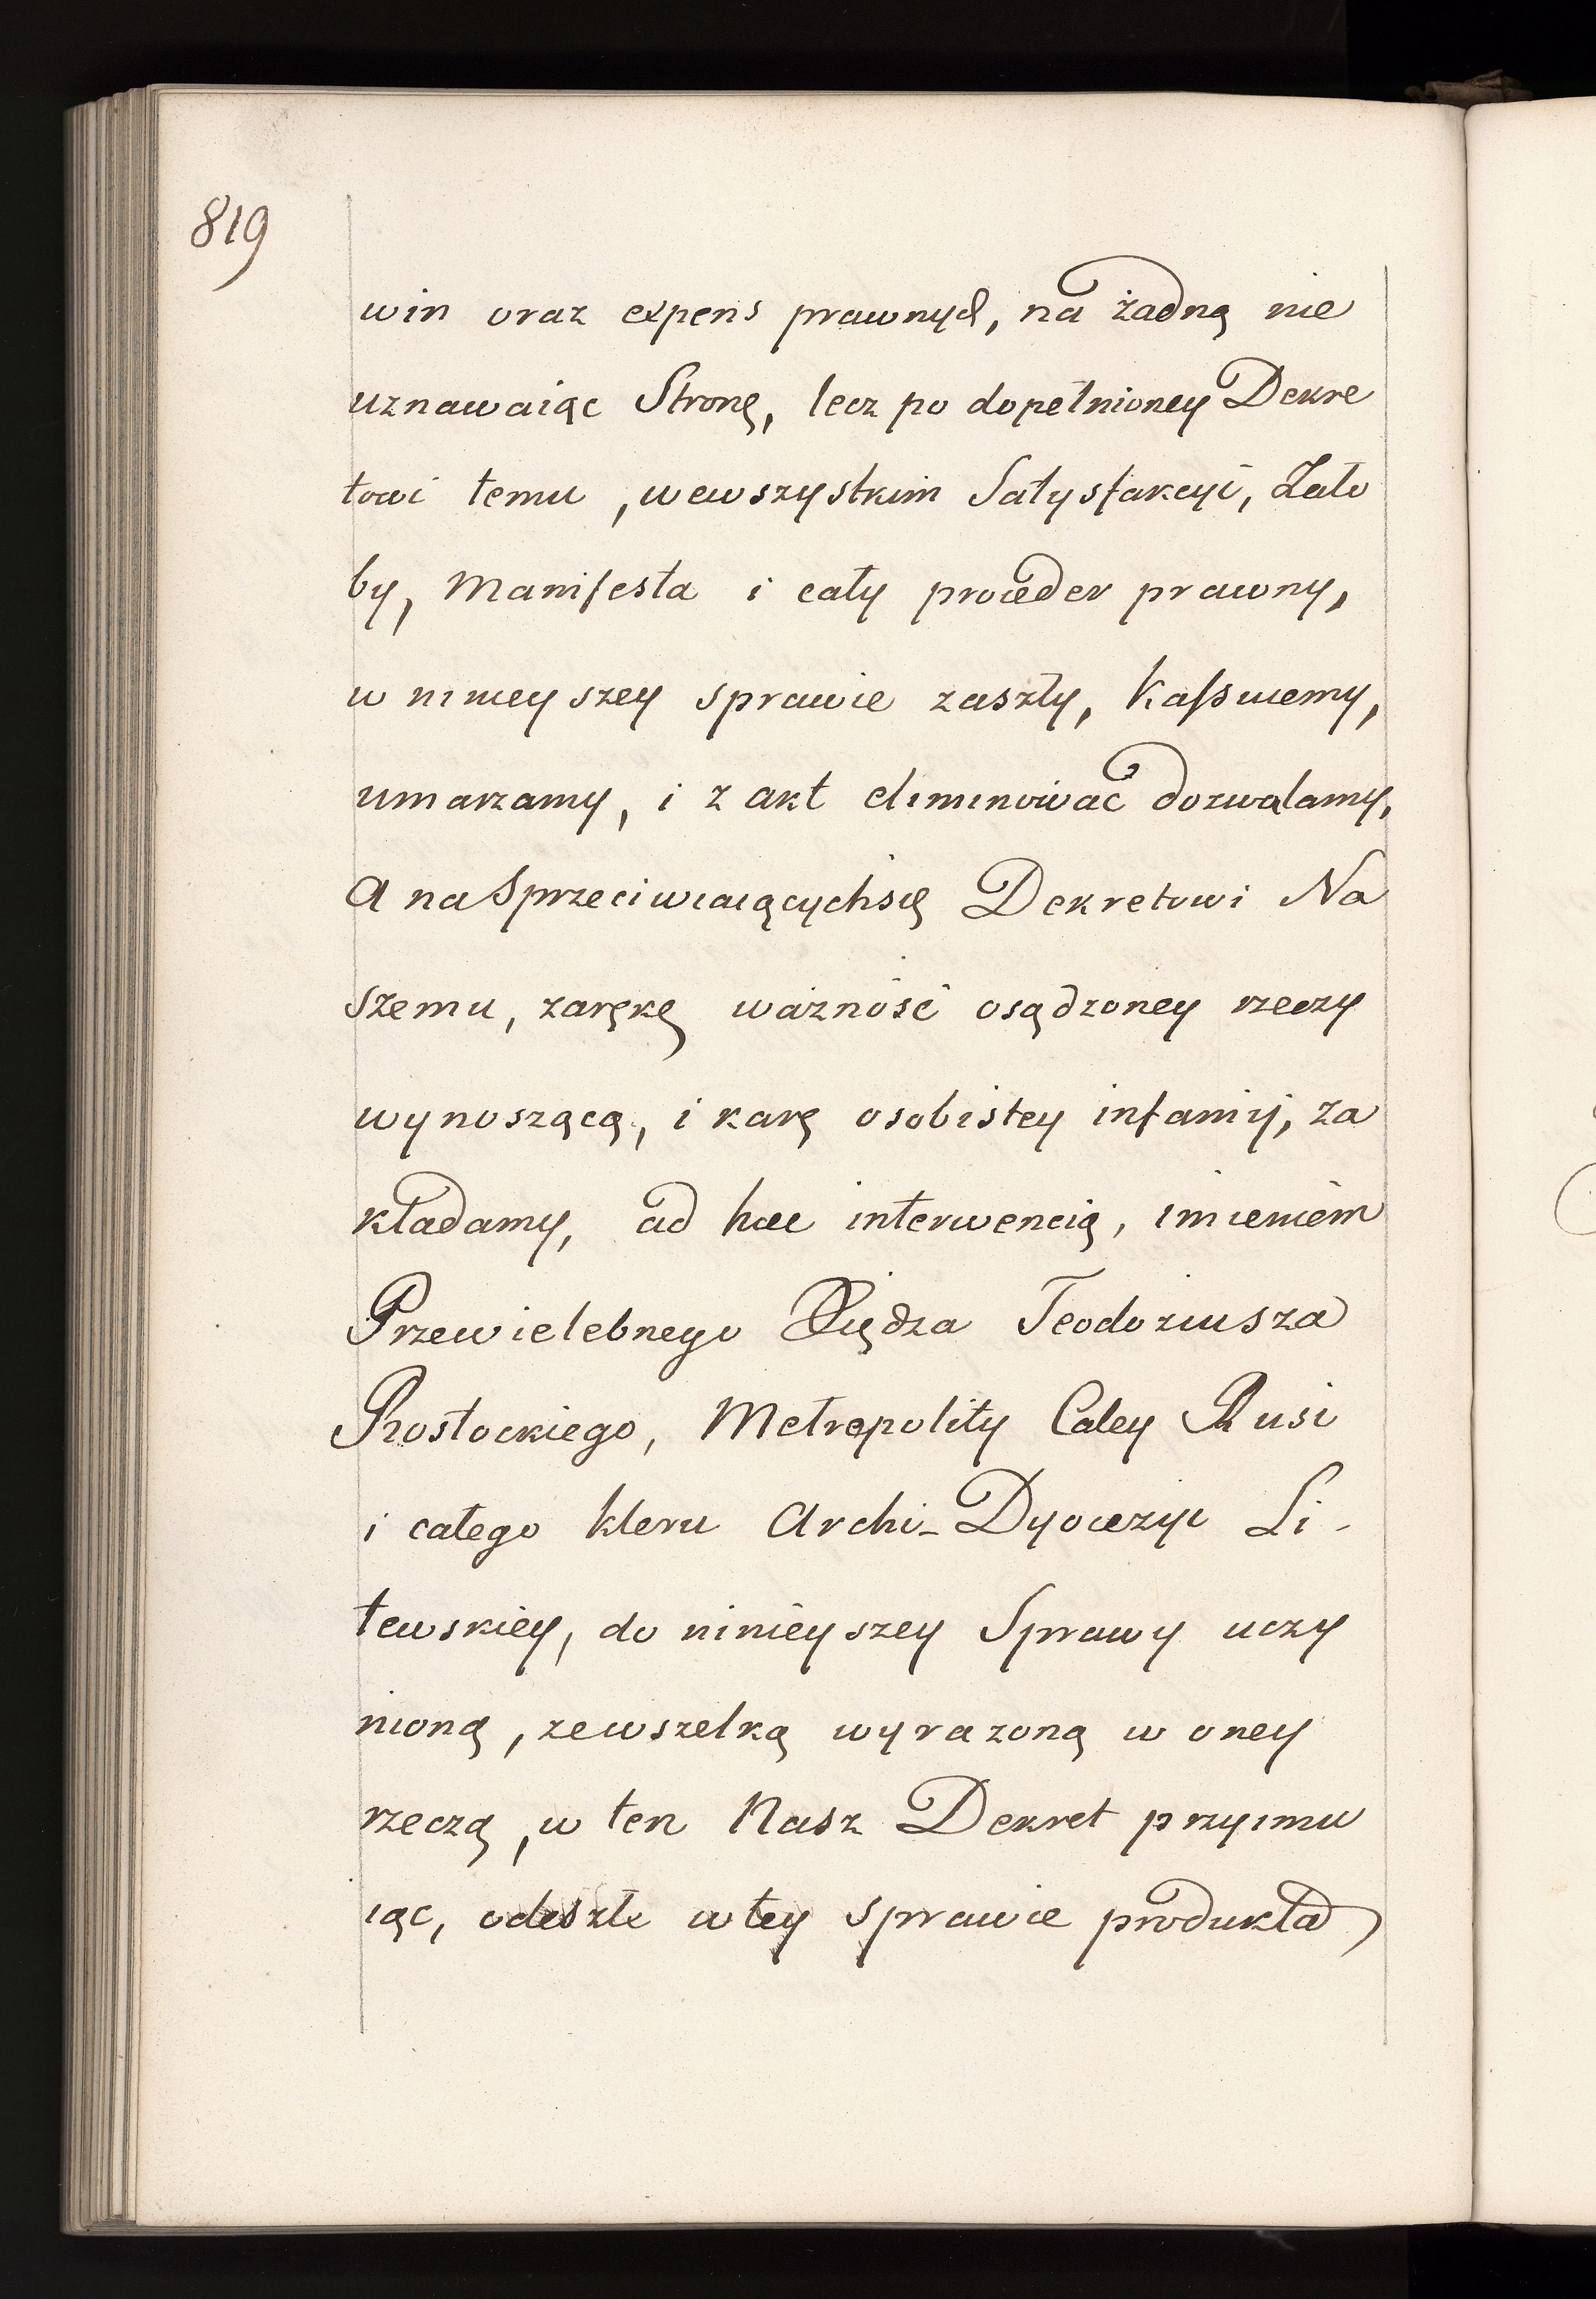 819
win oraz expens prawnych, na żadną nie
uznawaiąc Stronę, lecz po dopełnioney Dekre
towi temu, wewszystkim Satysfakcyi, Żało
by, Manifesta i cały proceder prawny,
w ninieyszey sprawie zaszły, Kassuiemy,
umarzamy, i z akt eliminować dozwalamy,
A na Sprzeciwiaiącychsię Dekretowi Na
szemu, zarękę ważność osądzoney rzeczy
wynoszącą, i karę osobistey infamij, za
kładamy, ad hæc interwencią, imieniem
Przewielebnego Xiędza Teodoziusza
Rostockiego, Metropolity Całey Rusi
i całego kleru Archi-Dyocezyi Li-
tewskiey, do ninieyszey Sprawy uczy
nioną, zewszelką wyrazoną w oney
rzeczą, w ten Nasz Dekret przyimu
iąc, odeszłe w tey sprawie produkta